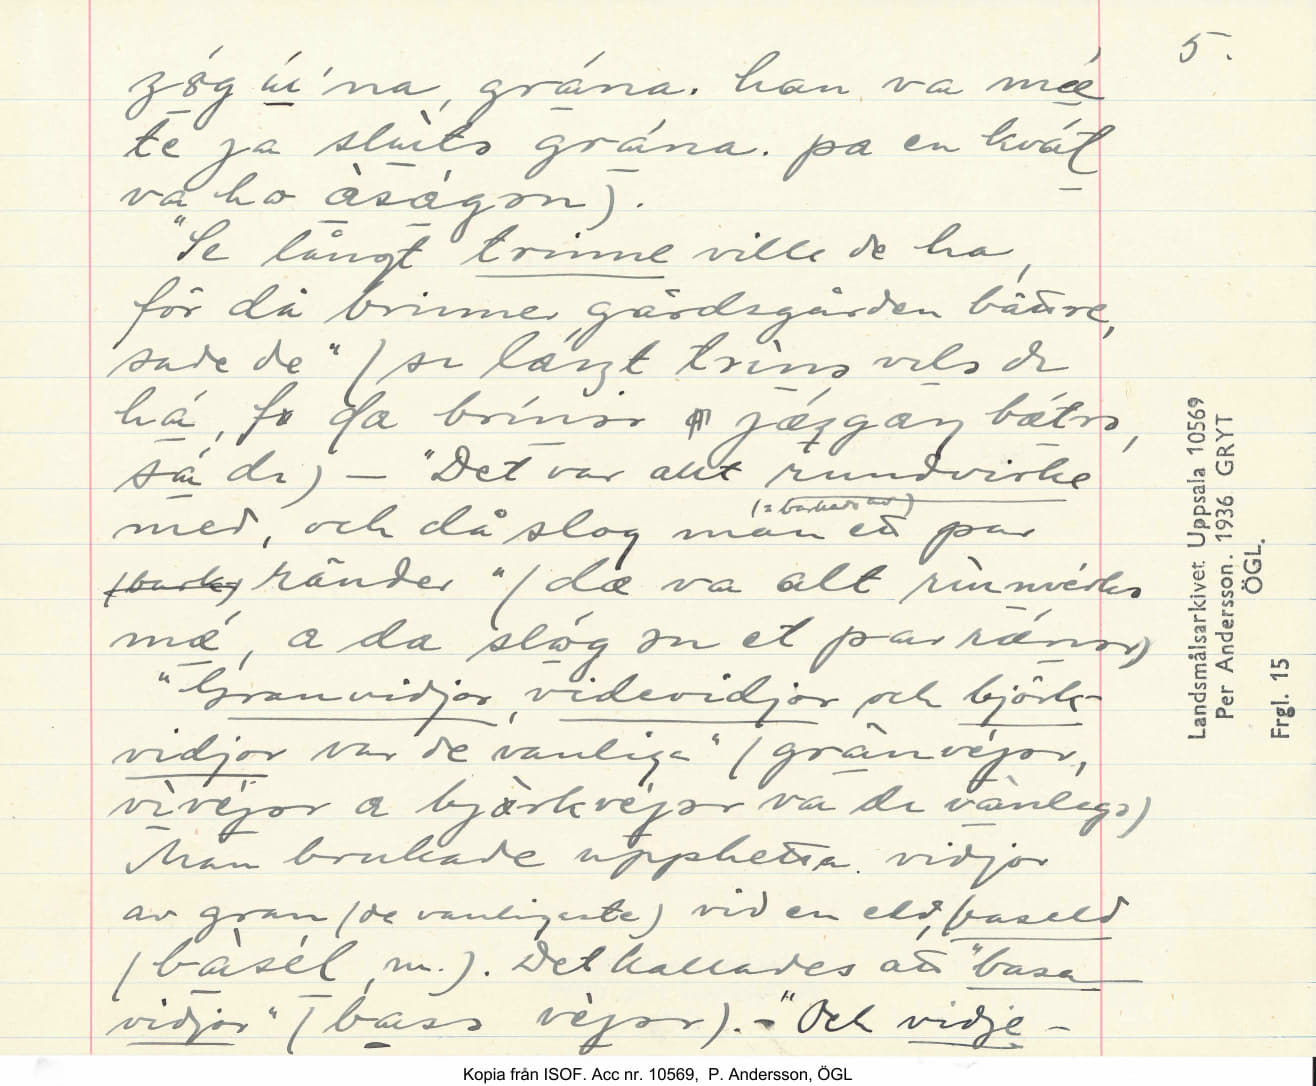 5.
zóg ú́'na, grána. han va mǽ
te ja slùtə grána. pa en kvál
va ho àságən).
"Se långt trinne ville de ha,
för då brinner gärdsgården bättre,
sade de" (se laŋt trìnə velə de
há, fə da brínər jæ̀ʂgan bætrə,
sá de) – "Det var allt rundvirke
med, och då slog man ett par
(=barkade av)
(bark) ränder" (dæ va alt rùnvérkə
mǽ, a da slóg ən et par ræ̀nər)
"Granvidjor, videvidjor och björk-
vidjor var de vanliga" (grànvéjər,
vìvéjər a bjærkvéjər va de vànlegə)
Man brukade upphetta vidjor
av gran (de vanligaste) vid en eld, baseld
(bàsél, m.). Det kallades att "basa
vidjor" (basə vèjər). – "Och vidje-
Landsmålsarkivet Uppsala 10569
Per Andersson. 1936. GRYT
ÖGL.
Frgl. 15
Kopia från ISOF. Acc nr. 10569, P. Andersson, ÖGL